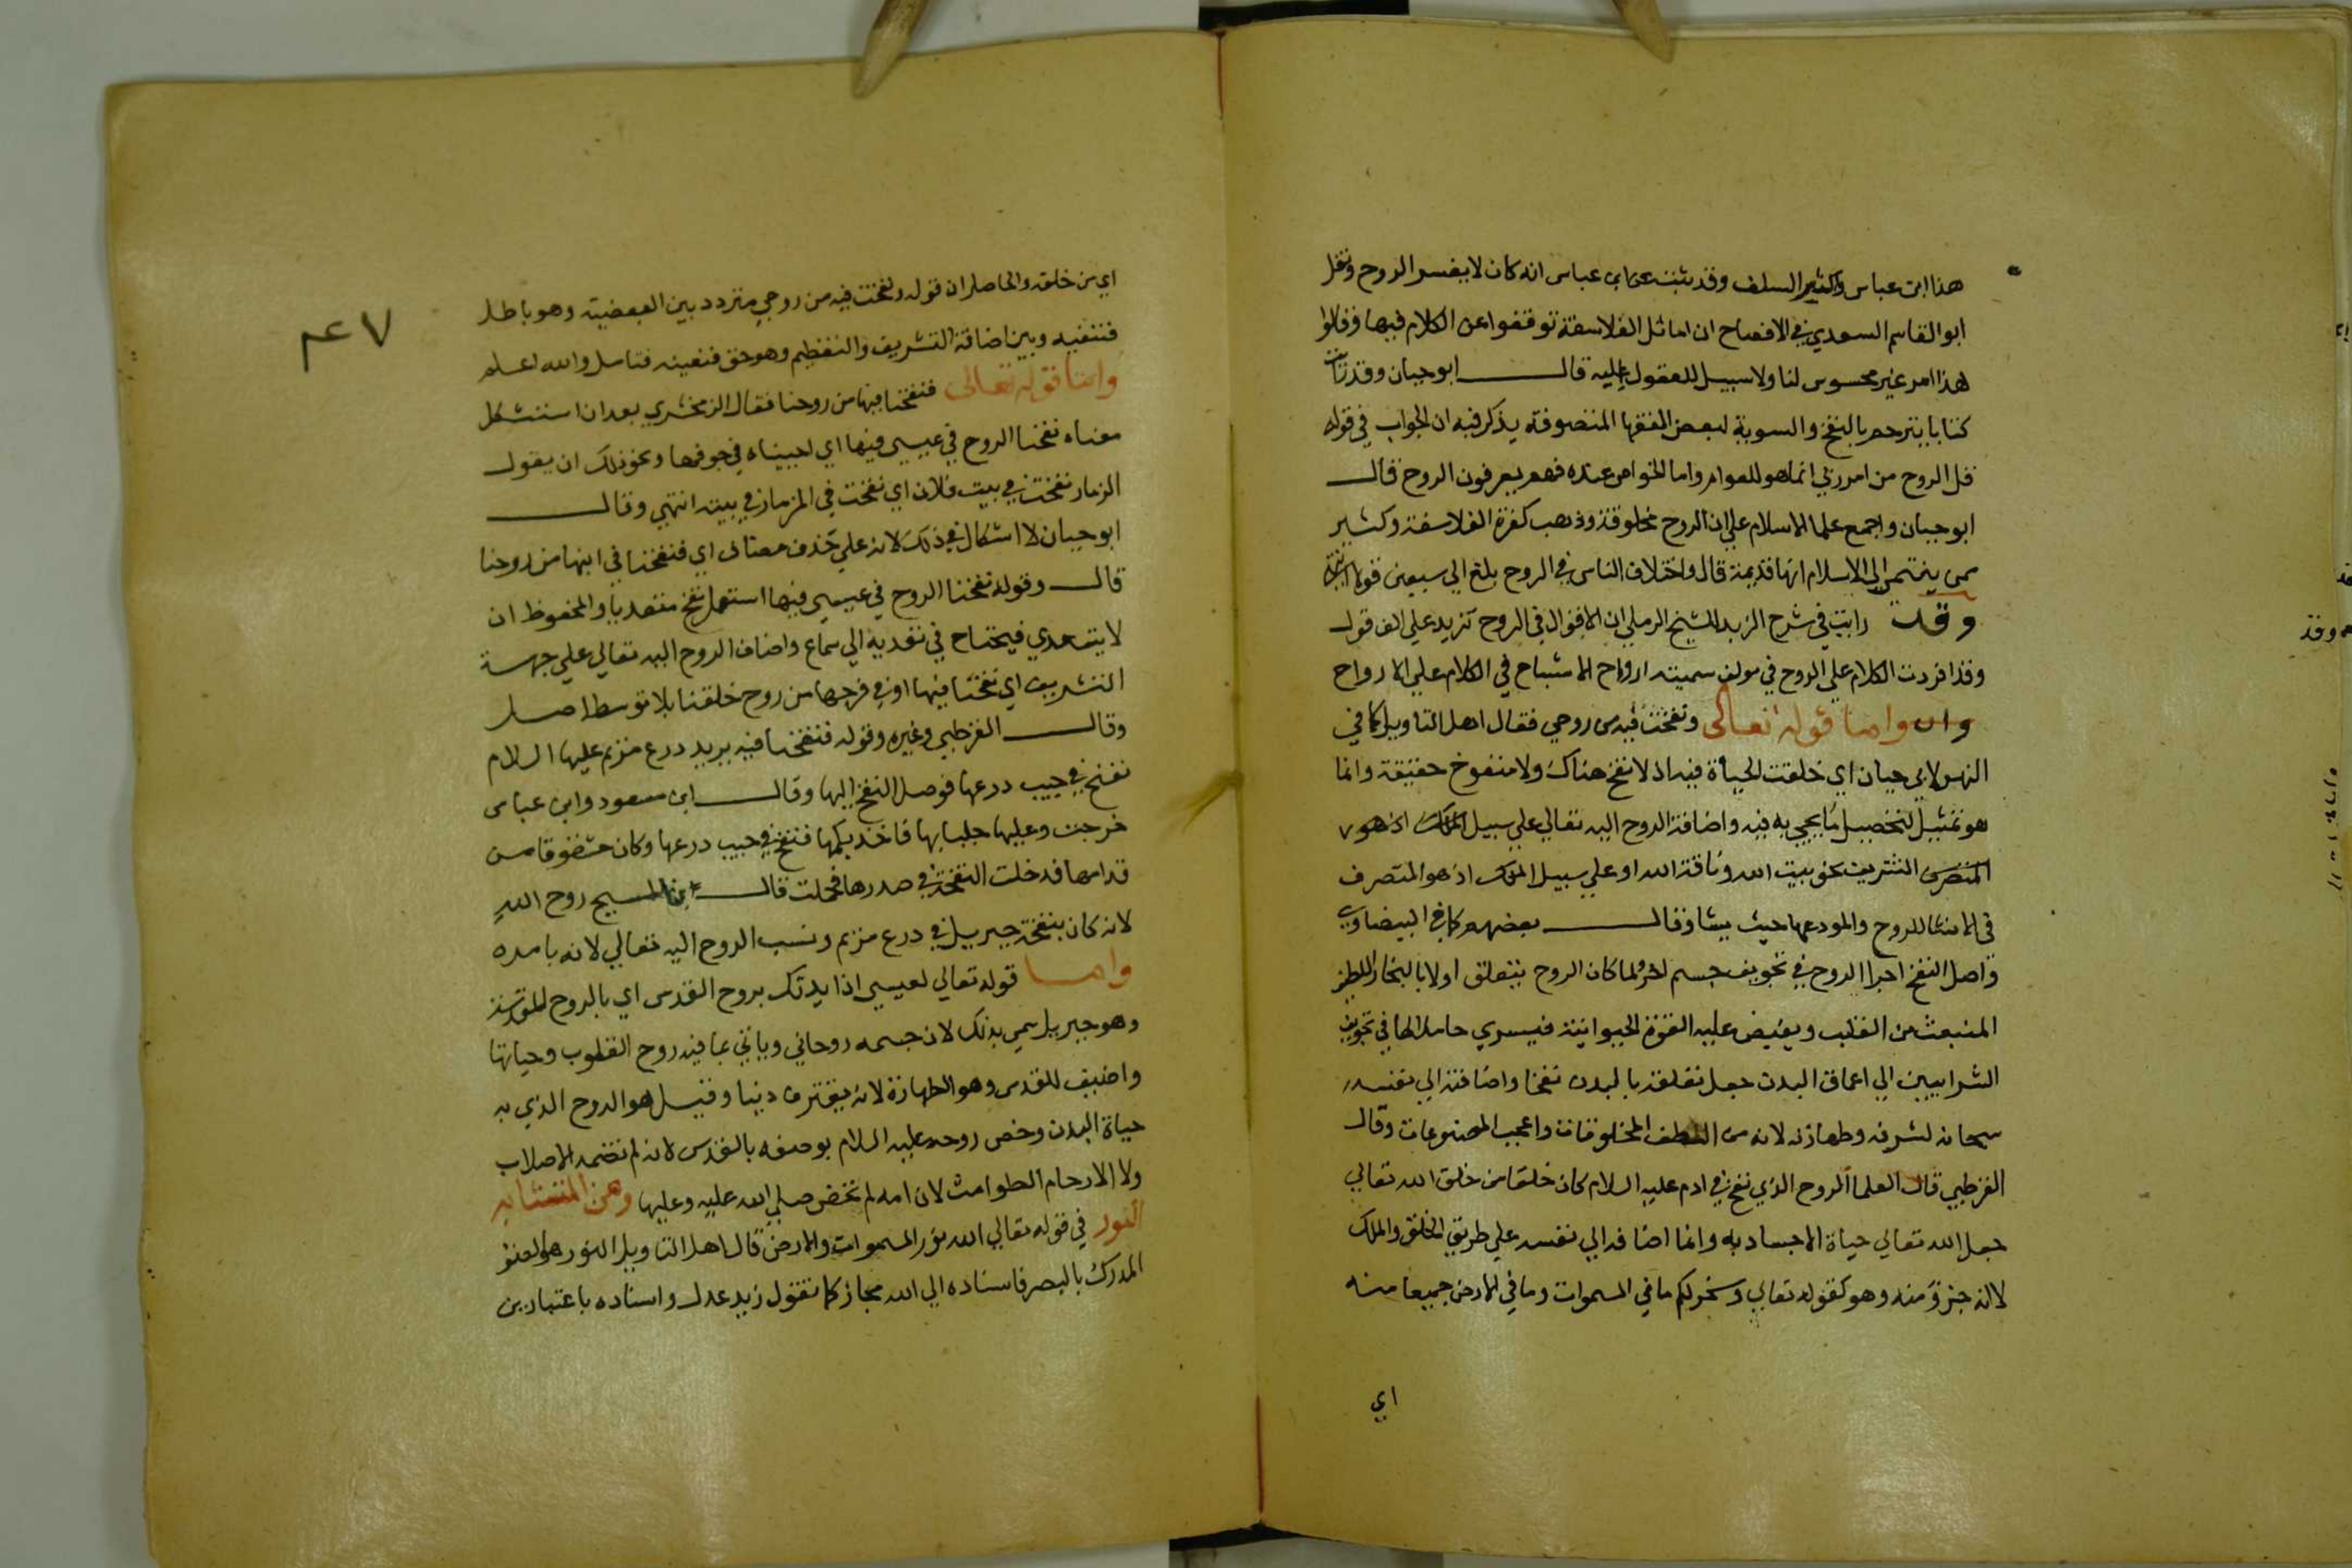 هذا ابن عباس واكثر السلف وقد ثبت عن ابن عباس انه كان لا يفسر الروح ونقل
ابو القاسم السعدي في الافصاح ان اماثل الفلاسفة توقفوا عن الكلام فيها وقالوا
هذا امر غير محسوس لنا ولا سبيل للعقول اليه قال ابو حيان وقد رايت
كتابا يترجم بالنفخ والسوية لبعض الفقها المتصوفة يذكر فيه ان الجواب في قوله
قل الروح من امر ربي انما هو للعوام واما الخواص عنده فهم يعرفون الروح قال
ابو حيان واجمع علما الاسلام علي ان الروح مخلوقة وذهب كفرة الفلاسفة وكثير
ممن ينتمي الي الاسلام انها قديمة قال واختلاف الناس في الروح بلغ الي سبعين قولا انتهي
وقد رايت في شرح الزبد للشيخ الرملي ان الاقوال في الروح تزيد علي الف قول
وقد افردت الكلام علي الروح في مولف سميته ارواح الاشباح في الكلام علي الارواح
واما قوله تعالى ونفخت فيه من روحي فقال اهل التاويل كما في
النهر لابي حيان اي خلقت الحياة فيه اذ لا نفخ هناك ولا منفوخ حقيقة وانما
هو تمثيل لتحصيل ما يحيي به فيه واضافة الروح اليه تعالي علي سبيل الملك اذ هو
المتصرف التشريف نحو بيت الله وناقة الله او علي سبيل الملك اذ هو المتصرف
في الانشا للروح والمودعها حيث يشا وقال بعضهم كما في البيضاوي
واصل النفخ اجرا الروح في تجويف جسم اخر ولما كان الروح يتعلق اولا بالبخار اللطيف
المنبعث من القلب ويفيض عليه القوة الحيوانية فيسري حاملا لها في تجويف
الشرايين الي اعماق البدن جعل تعلقه بالبدن نفخا واضافته الي نفسه
سبحانه لشرفه وطهارته لانه من الطف المخلوقات واعجب المصنوعات وقال
القرطبي قال العلما الروح الذي نفخ في ادم عليه السلام كان خلقا من خلق الله تعالي
جعل الله تعالي حياة الاجساد به وانما اضافه الي نفسه علي طريق الخلق والملك
لا انه جزؤ منه وهو كقوله تعالي وسخر لكم ما في السموات وما في الارض جميعا منه
اي
٤٧
اي من خلقه والحاصل ان قوله ونفخت فيه من روحي متردد بين البعضية وهو باطل
فتنفيه وبين اضافة التشريف والتعظيم وهو حق فتعينه فتامل والله اعلم
واما قوله تعالى فنفخنا فيها من روحنا فقال الزمخشري بعد ان استشكل
معناه نفخنا الروح في عيسي فيها اي احييناه في جوفها ونحو ذلك ان يقول
الزمار نفخت في بيت فلان اي نفخت في المزمار في بيته انتهي وقال
ابو حيان لا اشكال في ذلك لانه علي حذف مضاف اي فنفخنا في ابنها من روحنا
قال وقوله نفخنا الروح في عيسي فيها استعمل نفخ متعديا والمحفوظ ان
لا يتعدي فيحتاج في تعديه الي سماع واضاف الروح اليه تعالي علي جهة
التشريف اي نفخنا فيها او في فرجها من روح خلقنا بلا توسط اصل
وقال القرطبي وغيره وقوله فنفخنا فيه يريد درع مريم عليها السلام
نفخ في جيب درعها فوصل النفخ اليها وقال ابن مسعود وابن عباس
خرجت وعليها جلبابها فاخذ بكمها فنفخ في جيب درعها وكان مشقوقا من
قدامها فدخلت النفخة في صدرها فحملت قال المسيح روح الله
لانه كان بنفخة جبريل في درع مريم ونسب الروح اليه تعالي لانه بامره
واما قوله تعالي لعيسي اذ ايدتك بروح القدس اي بالروح المقدسة
وهو جبريل سمي بذلك لان جسمه روحاني وياتي بما فيه روح القلوب وحياتها
واضيف للقدس وهو الطهارة لانه يقترف دينا وقيل هو الروح الذي به
حياة البدن وخص روحه عليه السلام بوصفه بالقدس لانه لم تضمه الاصلاب
ولا الارحام الطوامث لان امه لم تحض صلي الله عليه وعليها ومن المتشابه
النور في قوله تعالي الله نور السموات والارض قال اهل التاويل النور هو الضؤ
المدرك بالبصر فاسناده الي الله مجاز كما تقول زيد عدل واسناده باعتبارين